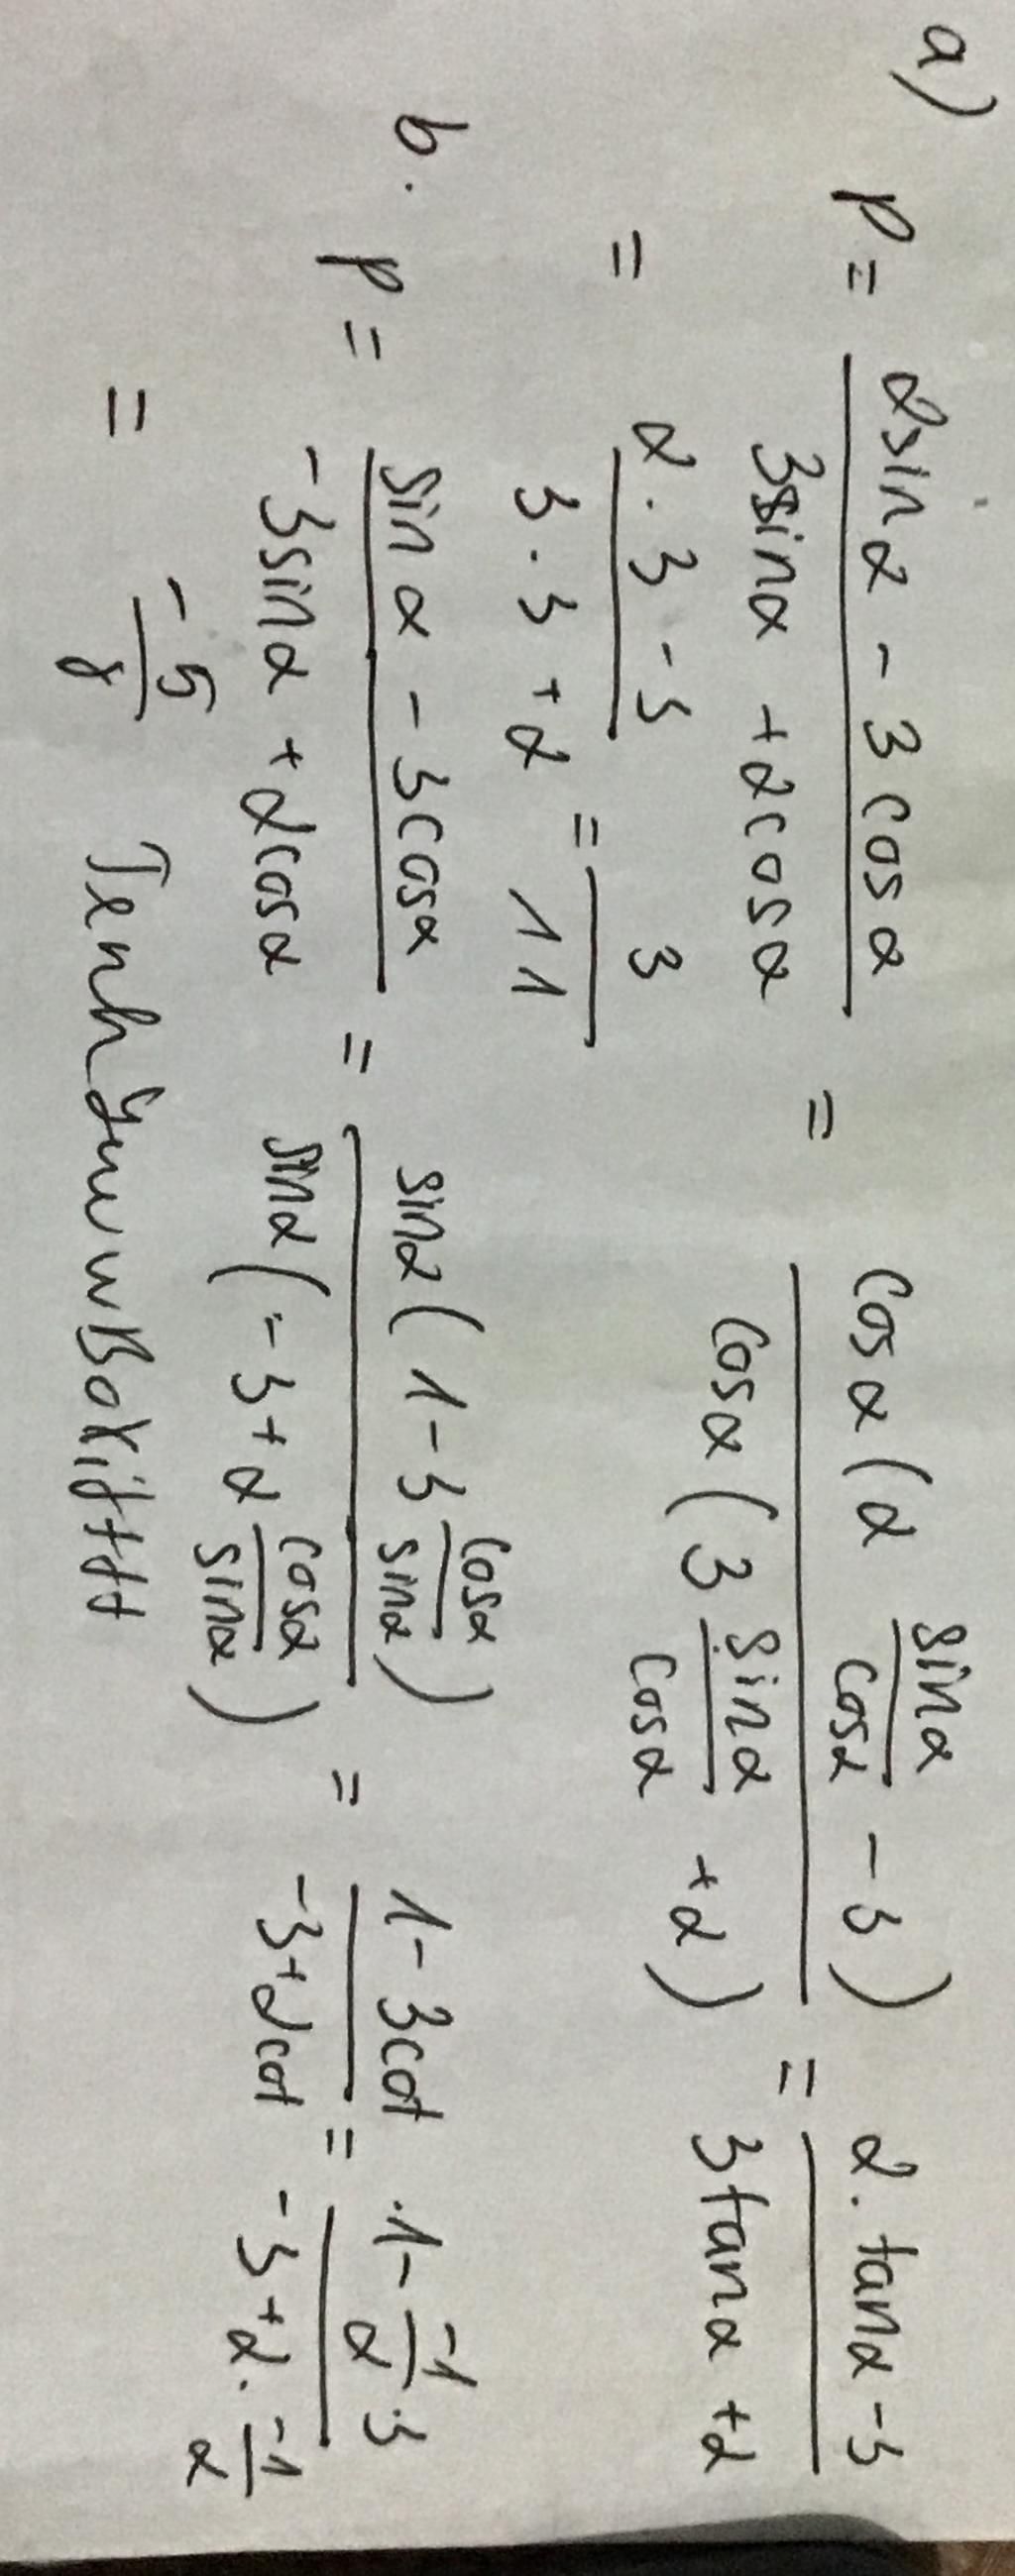 a) P = \frac{2sinα - 3cosα}{3sinα + 2cosα} = \frac{cosα(2\frac{sinα}{cosα} - 3)}{cosα(3\frac{sinα}{cosα} + 2)} = \frac{2.tanα - 3}{3tanα + 2}
= \frac{2.3 - 3}{3.3 + 2} = \frac{3}{11}
b. P = \frac{sinα - 3cosα}{-3sinα + 2cosα} = \frac{sinα(1 - 3\frac{cosα}{sinα})}{sinα(-3 + 2\frac{cosα}{sinα})} = \frac{1 - 3cot}{-3 + 2cot} = \frac{1 - \frac{-1}{2}.3}{-3 + 2.\frac{-1}{2}}
= \frac{-5}{8}